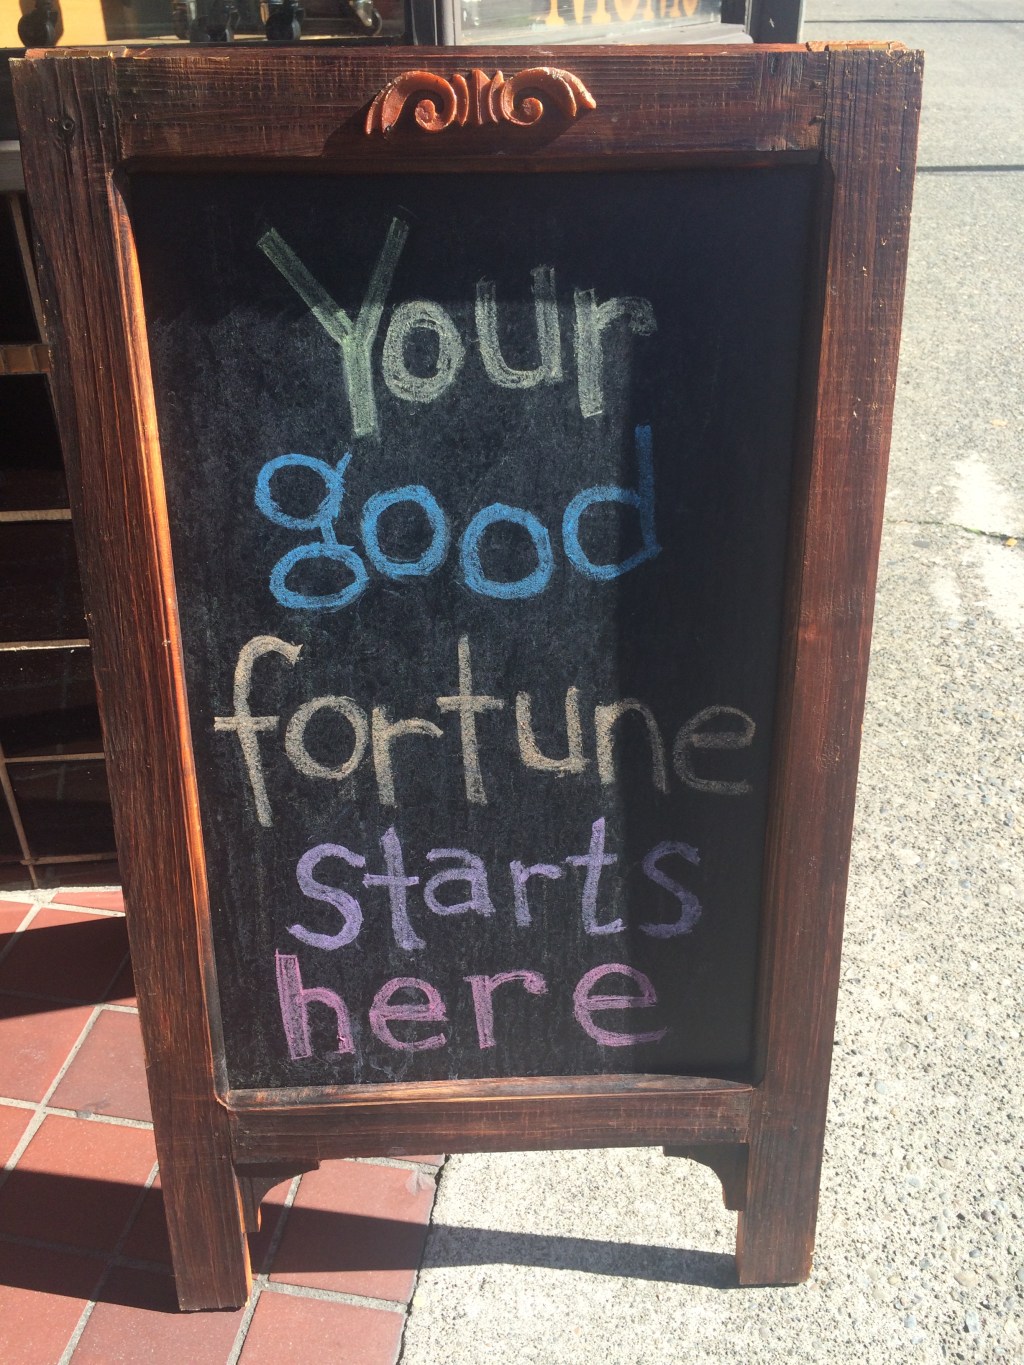 Your
good
fortune
starts
here